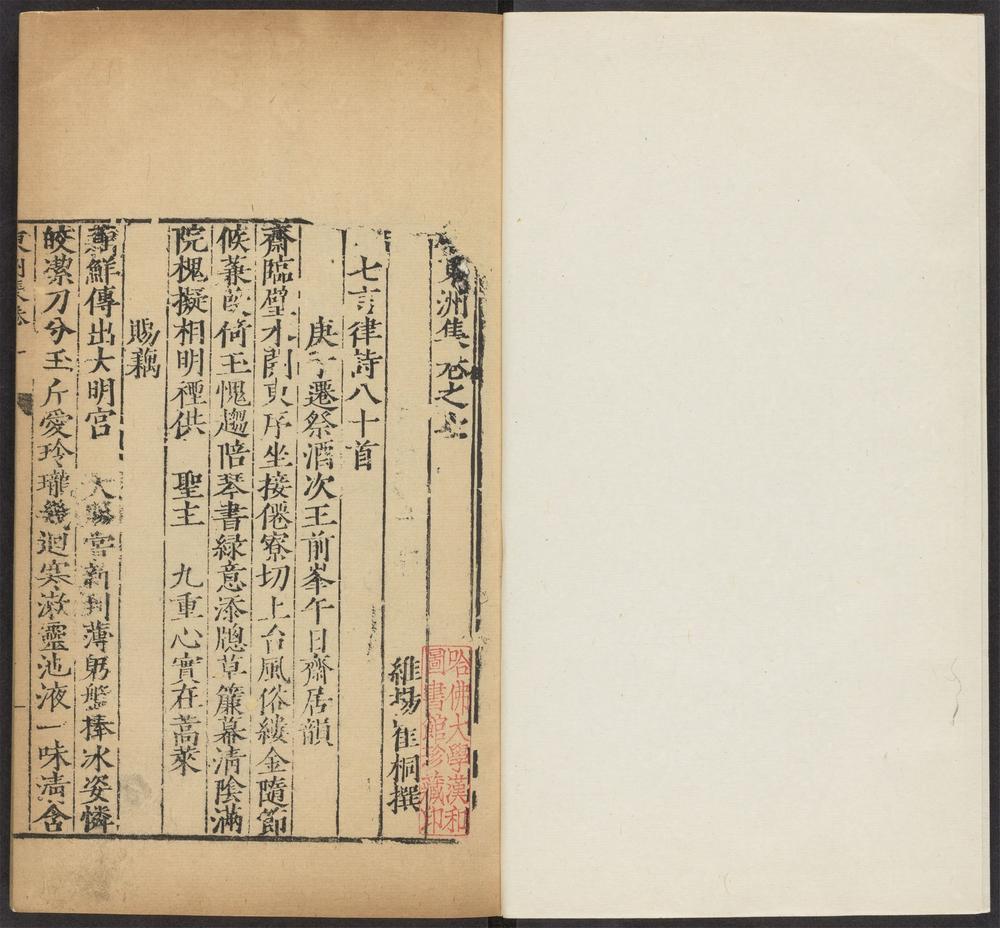 東洲集卷之七
維揚崔桐撰
七言律詩八十首
庚子遷祭酒次王前峯午日齋居韻
齋臨壁水開東序坐接僊寮切上台風俗縷金隨節
候蒹葭倚玉愧趨陪琴書綠意添牕草簾幕清陰滿
院槐擬相明禋供 聖主 九重心實在蒿萊
賜藕
鮮傳出大明宮 嘗新到薄躬盤捧冰姿憐
皎潔刀分玉片愛玲瓏幾迴寒漱靈池液一味清含
東洲集卷
哈佛大學漢和
圖書館珍藏印